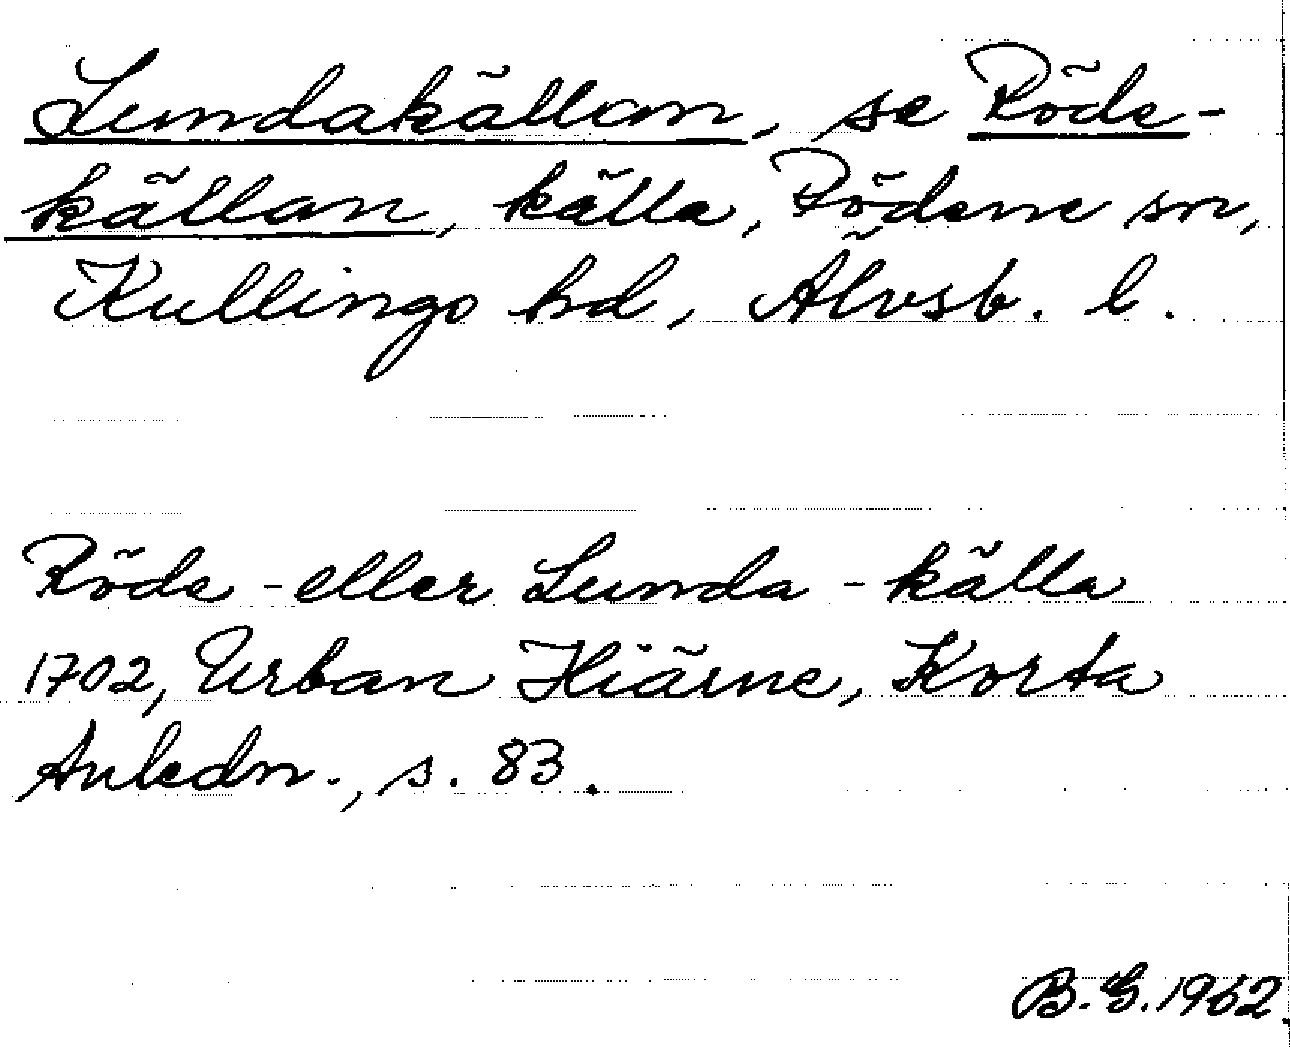 Lundakällan, se Röde-
källan, källa, Rödene sn,
Kullings hd, Älvsb. l.
Röde - eller Lunda - källa
1702, Urban Hiärne, Korta
Anledn., s. 83.
B. G. 1962.